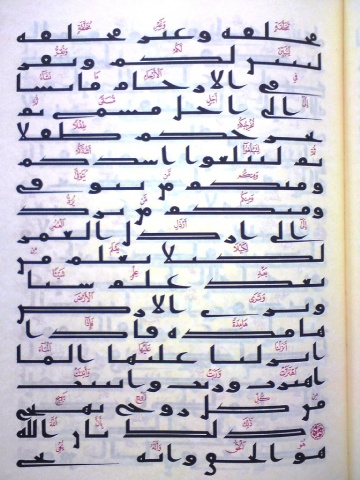 مخلقة وغير مخلقة
لنبين لكم ونقر
في الارحام ما نشا
الى اجل مسمى ثم
نخرجكم طفلا
ثم لتبلغوا اشدكم
ومنكم من يتوفى
ومنكم من يرد
الى ارذل العمر
لكيلا يعلم من
بعد علم شيئا
وترى الارض
هامدة فاذا
انزلنا عليها الما
اهتزت وربت وانبتت
من كل زوج بهيج
ذلك بان الله
هو الحق وانه يحي